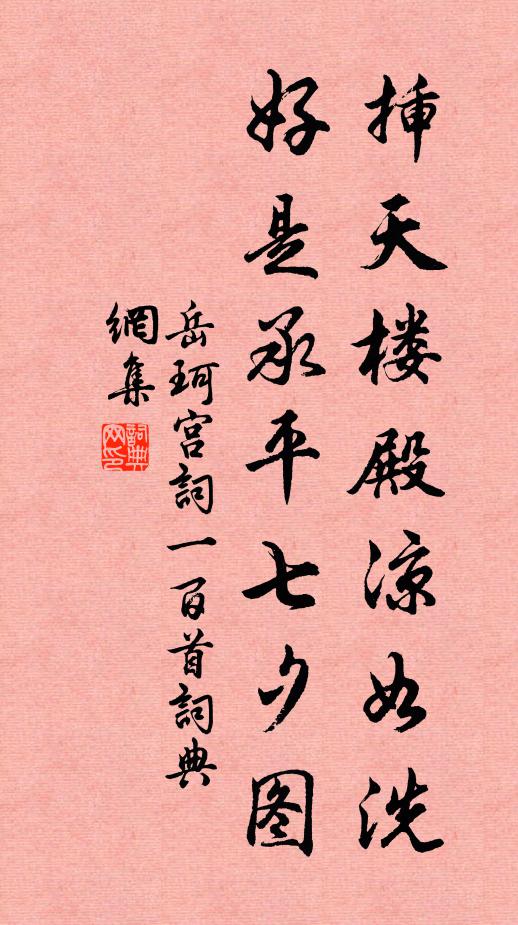 插天楼殿凉如洗
好是承平七夕图
岳珂宫詞一百首詞典
網集
詞典
网印